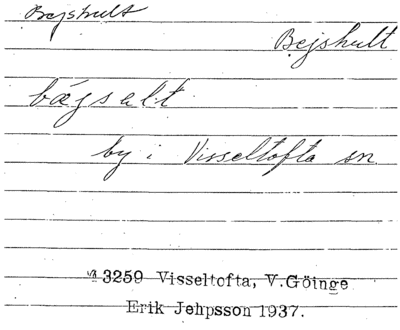 Bejshult
Bejshult
bægsalt
by i Visseltofta sn
3259 Visseltofta, V.Göinge
Erik Jehpsson 1937.